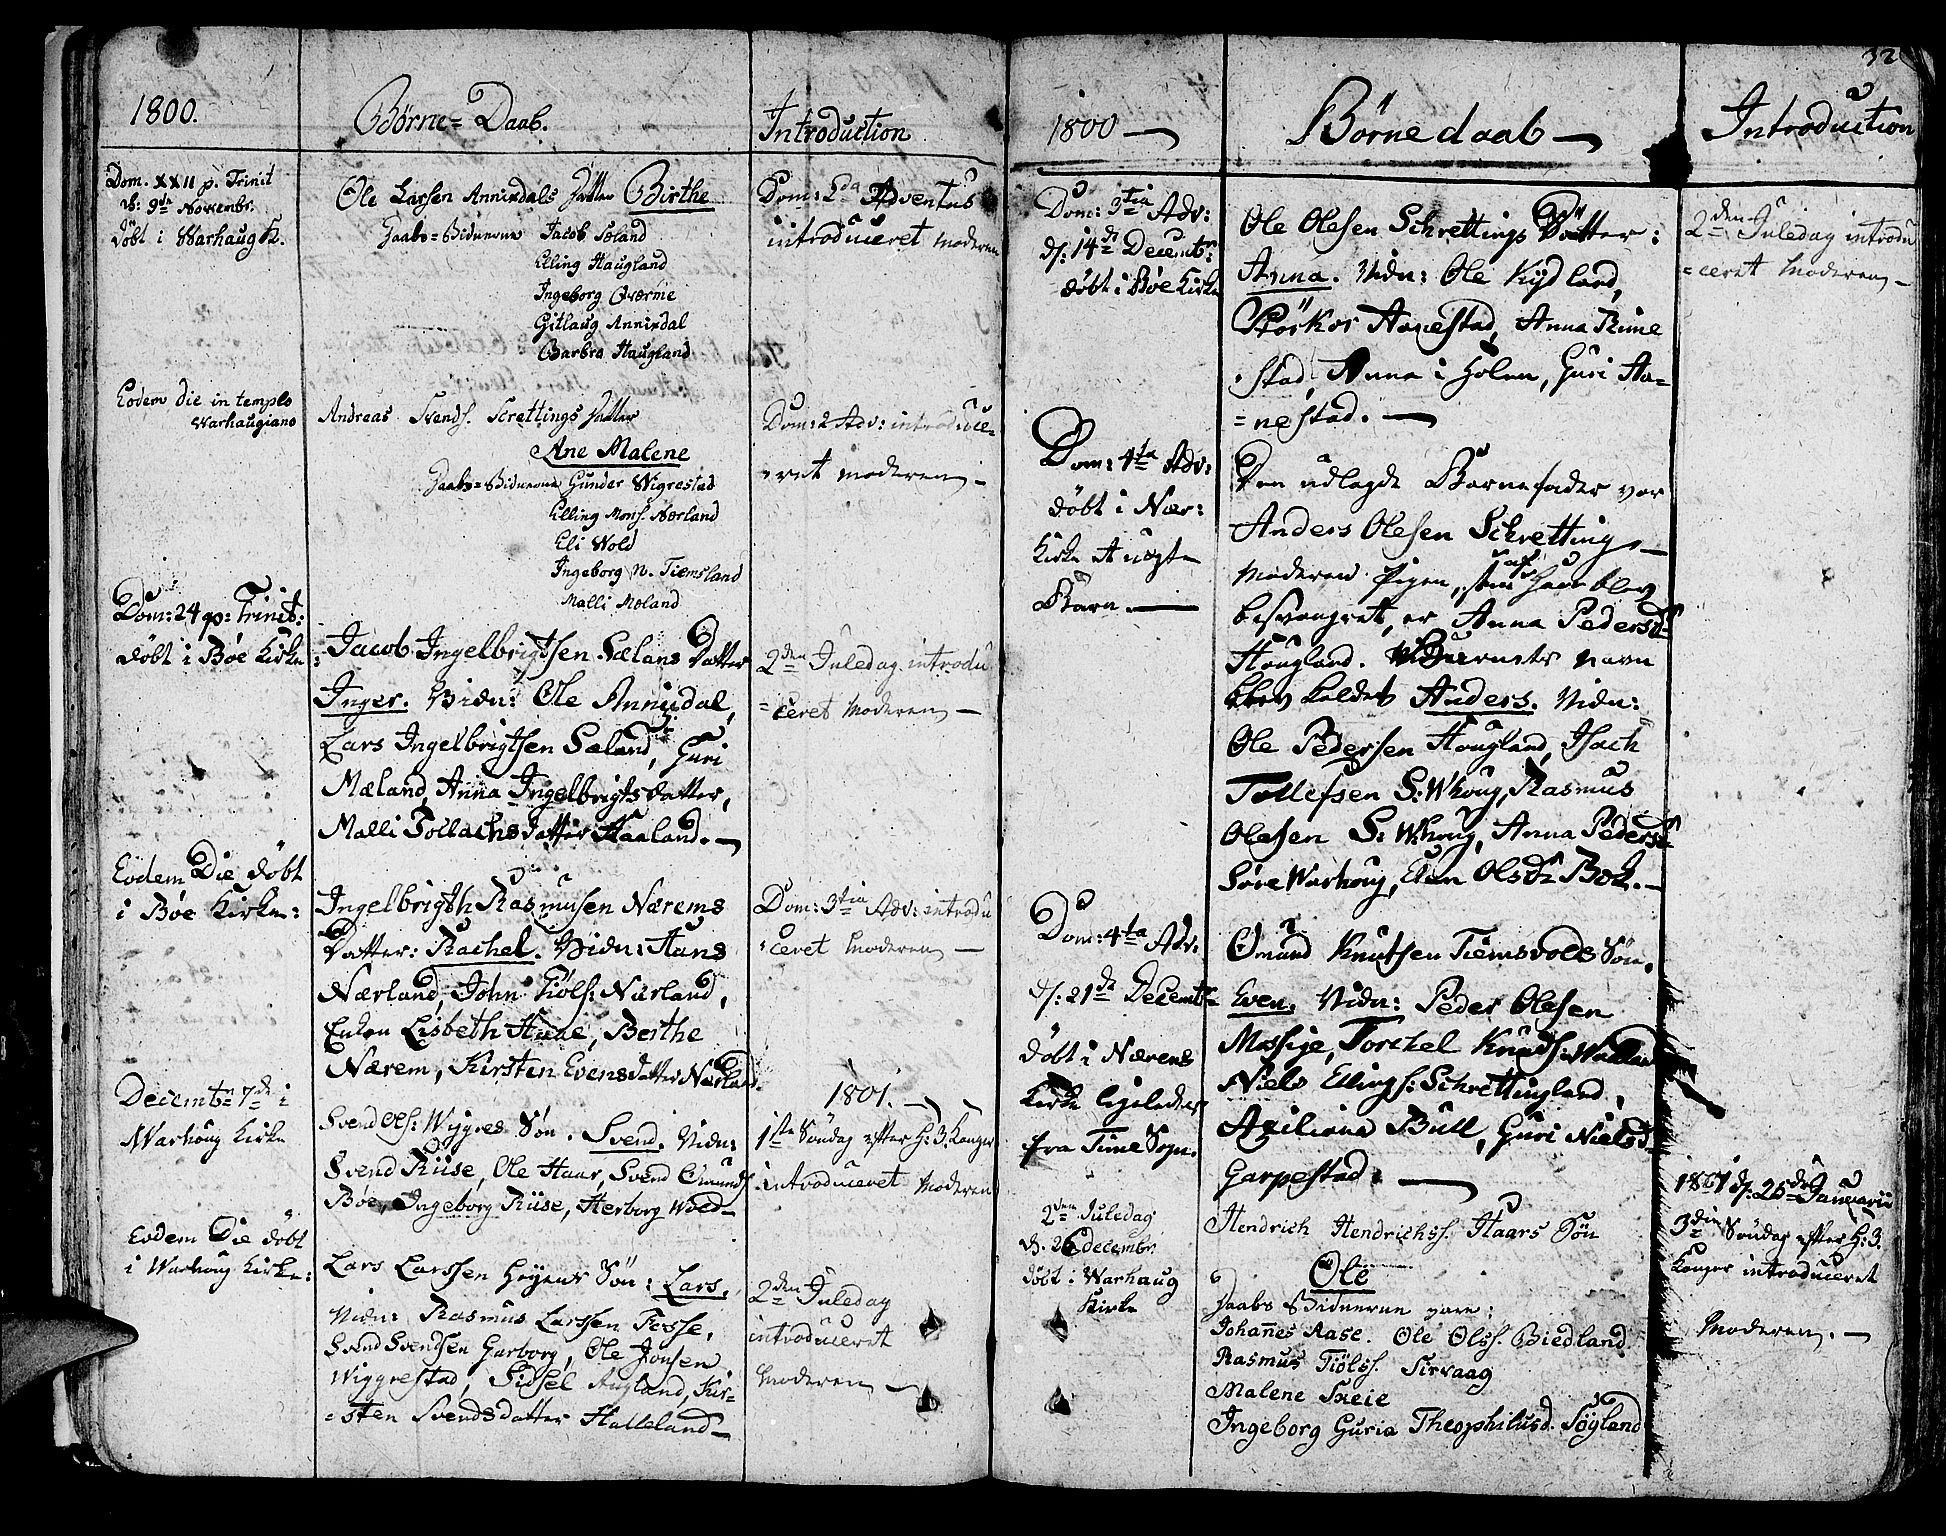 1800.
Børne= Daab.
Introduction
Dom. XXII p. Trinit
d: 9de Novembr.
døbt i Warhaug K.
Ole Larsen Annixdals Datter Birthe
Daabs=Vidnerne Jacob Sæland
Elling Haugland
Ingeborg Qværme
Gitlaug Annixdal
Barbra Haugland
Dom: 2da Adventus
introduceret Moderen
Eodem die in templo
Warhaugiano
Andreas Svends. Screttings Datter
Ane Malene
Daabs=Vidnerne Gunder Wigrestad
Elling Mons. Nærland
Eli Wold
Ingeborg N. Tiemsland
Malli Moland
Dom: 2 Adv: introduce=
=ret Moderen —
Dom: 24 p: Trinit:
døbt i Bøe Kirke
Jacob Ingelbrigtsen Sælans Datter
Inger. Vidn: Ole Annixdal,
Lars Ingelbrigtsen Sæland, Guri
Mæland, Anna Ingelbrigtsdatter,
Malli Tollachsdatter Haaland. —
2den Juledag introdu
=ceret Moderen —
Eodem Die døbt
i Bøe Kirke:
Ingelbrigth Rasmusen Nærems
Datter: Rachel. Vidn: Hans
Nærland, John Tiøls: Nærland,
Enken Lisbeth Huae, Berthe
Nærem, Kirsten Evensdatter Nærland.
Dom: 3tia Adv: introdu
=ceret Moderen —
Decembr 7de i
Warhoug Kirke
Svend Ols: Wiggres Søn. Svend. Vidn:
Svend Riise, Ole Haar, Svend Omunds
Boe, Ingeborg Riise, Herborg Wold —
1801. —
1ste Søndag efter H: 3. Konger
introduceret Moderen
Eodem Die døbt
i Warhoug Kirke:
Lars Larssen Høyens Søn: Lars.
Vidn: Rasmus Larssen Fosse,
Svend Svendsen Garborg, Ole Jonsen
Wiggrestad, Sidsel Augland, Kir=
=sten Svendsdatter Halleland —
2den Juledag
introduceret
Moderen —
32
1800 —
Børnedaab —
Introduction
Dom: 3tia Adv:
d: 14de Decembr:
døbt i Bøe Kirke
Ole Olesen Schrettings Datter:
Anna. Vidn: Ole Kydland,
Størker Aanestad, Anna Rime
stad, Anna i Holen, Guri Aa=
=nestad. —
2den Juledag introdu
=ceret Moderen —
Dom: 4ta Adv:
døbt i Nær:
Kirke Auegte
Barn. —
Den udlagde Barnefader var
Anders Olesen Schretting —
Moderen Pigen, som af ham blev
besvangret, er Anna Pedersd:
Hougland. Barnets Navn
blev kaldet Anders. Vidn:
Ole Pedersen Hougland, Isach
Tollefsen S: Whoug, Rasmus
Olesen S: Whoug, Anna Pedersd:
Søre Warhoug, Elen Olsd: Boe. —
Dom: 4ta Adv:
d: 21de Decembr
døbt i Nærens
Kirke ligeledes
fra Time Sogn.
Omund Knutsen Tiemsvolds Søn.
Even. Vidn: Peder Olesen
Mossige, Torckel Knuds:
Niels Ellings: Schrettingland,
Axiliana Bull, Guri Nielsd:
Garpestad. —
2den Juledag
d. 26 decembr.
døbt i Warhaug
Kirke
Hendrich Hendrichss. Haars Søn
Ole
Daabs Vidnerne vare:
Johannes Aase. Ole Olss. Biedland
Rasmus Tiølss. Sirvaag
Malene Sxeie
Ingeborg Guria Theophilusd. Søyland
1801 d: 25de Januarii
3die Søndag efter H: 3.
Konger introduceret
Moderen. —